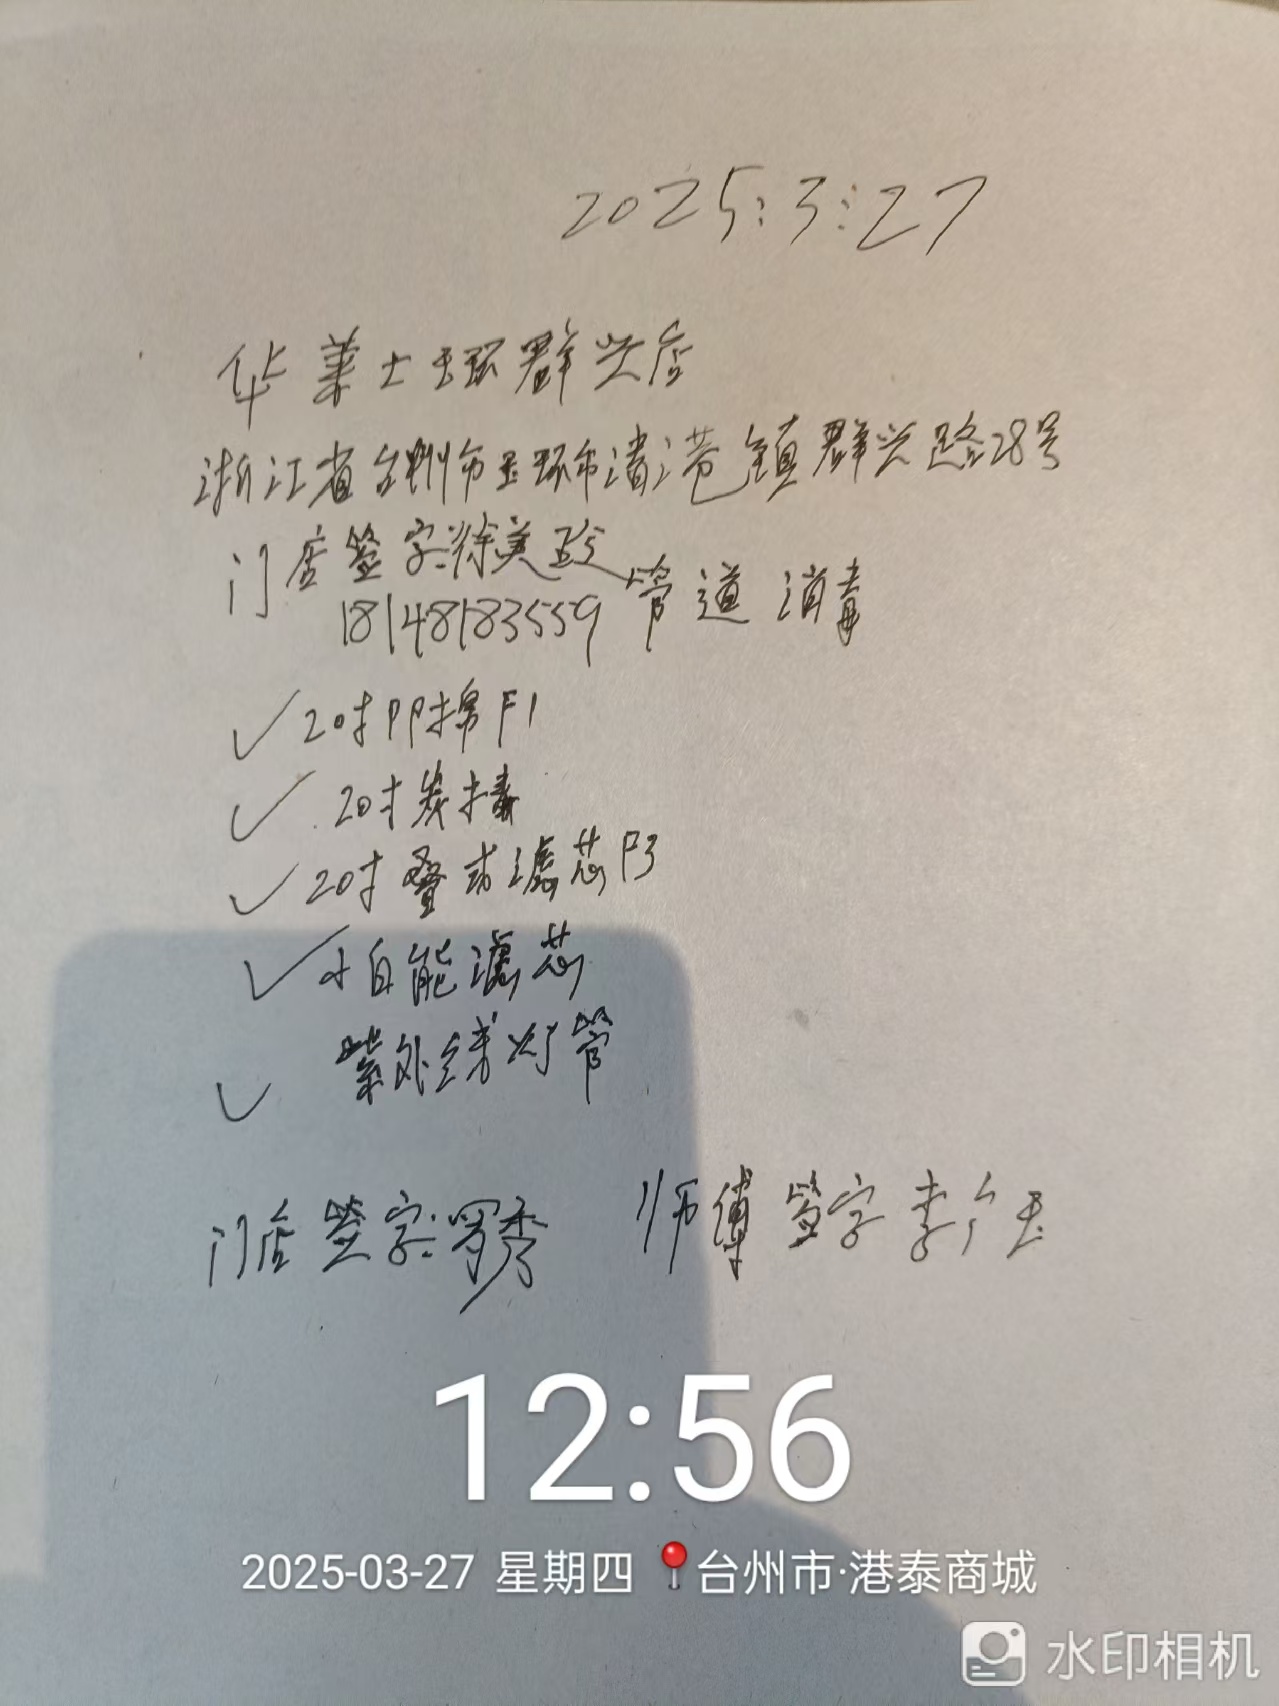 2025:3:27
华莱士玉环群兴店
浙江省台州市玉环市清港镇群兴路28号
门店签字:徐美
18148183559 管道消毒
✓ 20寸PP棉F1
✓ 20寸炭棒
✓ 20寸叠式滤芯F3
✓ 小白能滤芯
✓ 紫外线灯管
门店签字:罗秀 师傅签字 李广玉
12:56
2025-03-27 星期四 台州市·港泰商城
水印相机